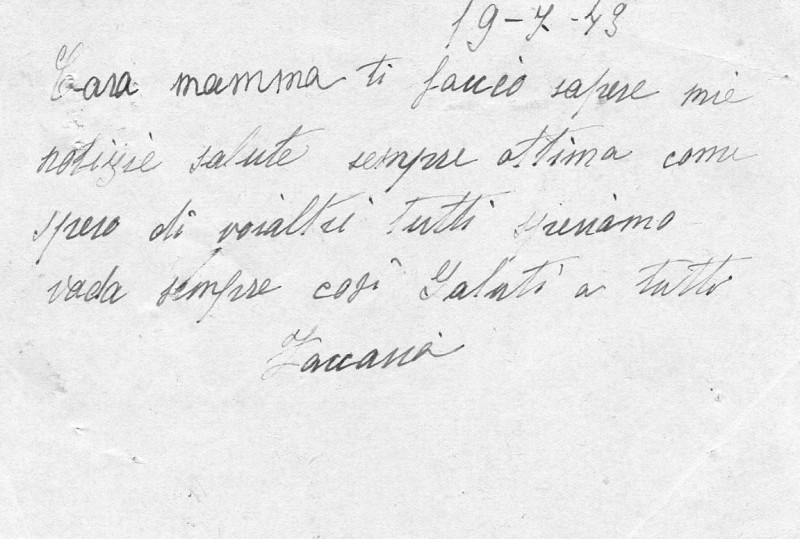 19-7-43
Cara mamma ti faccio sapere mie
notizie salute sempre ottima come
spero di voialtri tutti speriamo
vada sempre così Saluti a tutti
Zaccaria